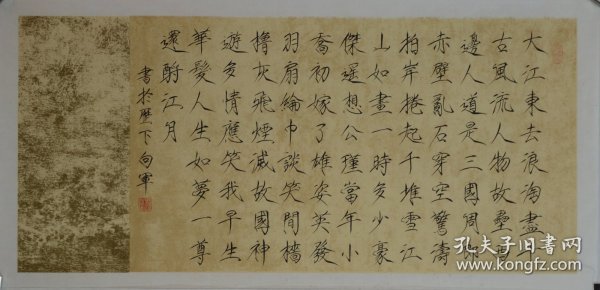 大江東去浪淘盡千
古風流人物故壘西
邊人道是三國周郎
赤壁亂石穿空驚濤
拍岸捲起千堆雪江
山如畫一時多少豪
傑遥想公瑾當年小
喬初嫁了雄姿英發
羽扇綸巾談笑間檣
櫓灰飛煙滅故國神
遊多情應笑我早生
華髮人生如夢一尊
還酹江月
書於歷下向軍
孔夫子旧書网
www.kongfz.com